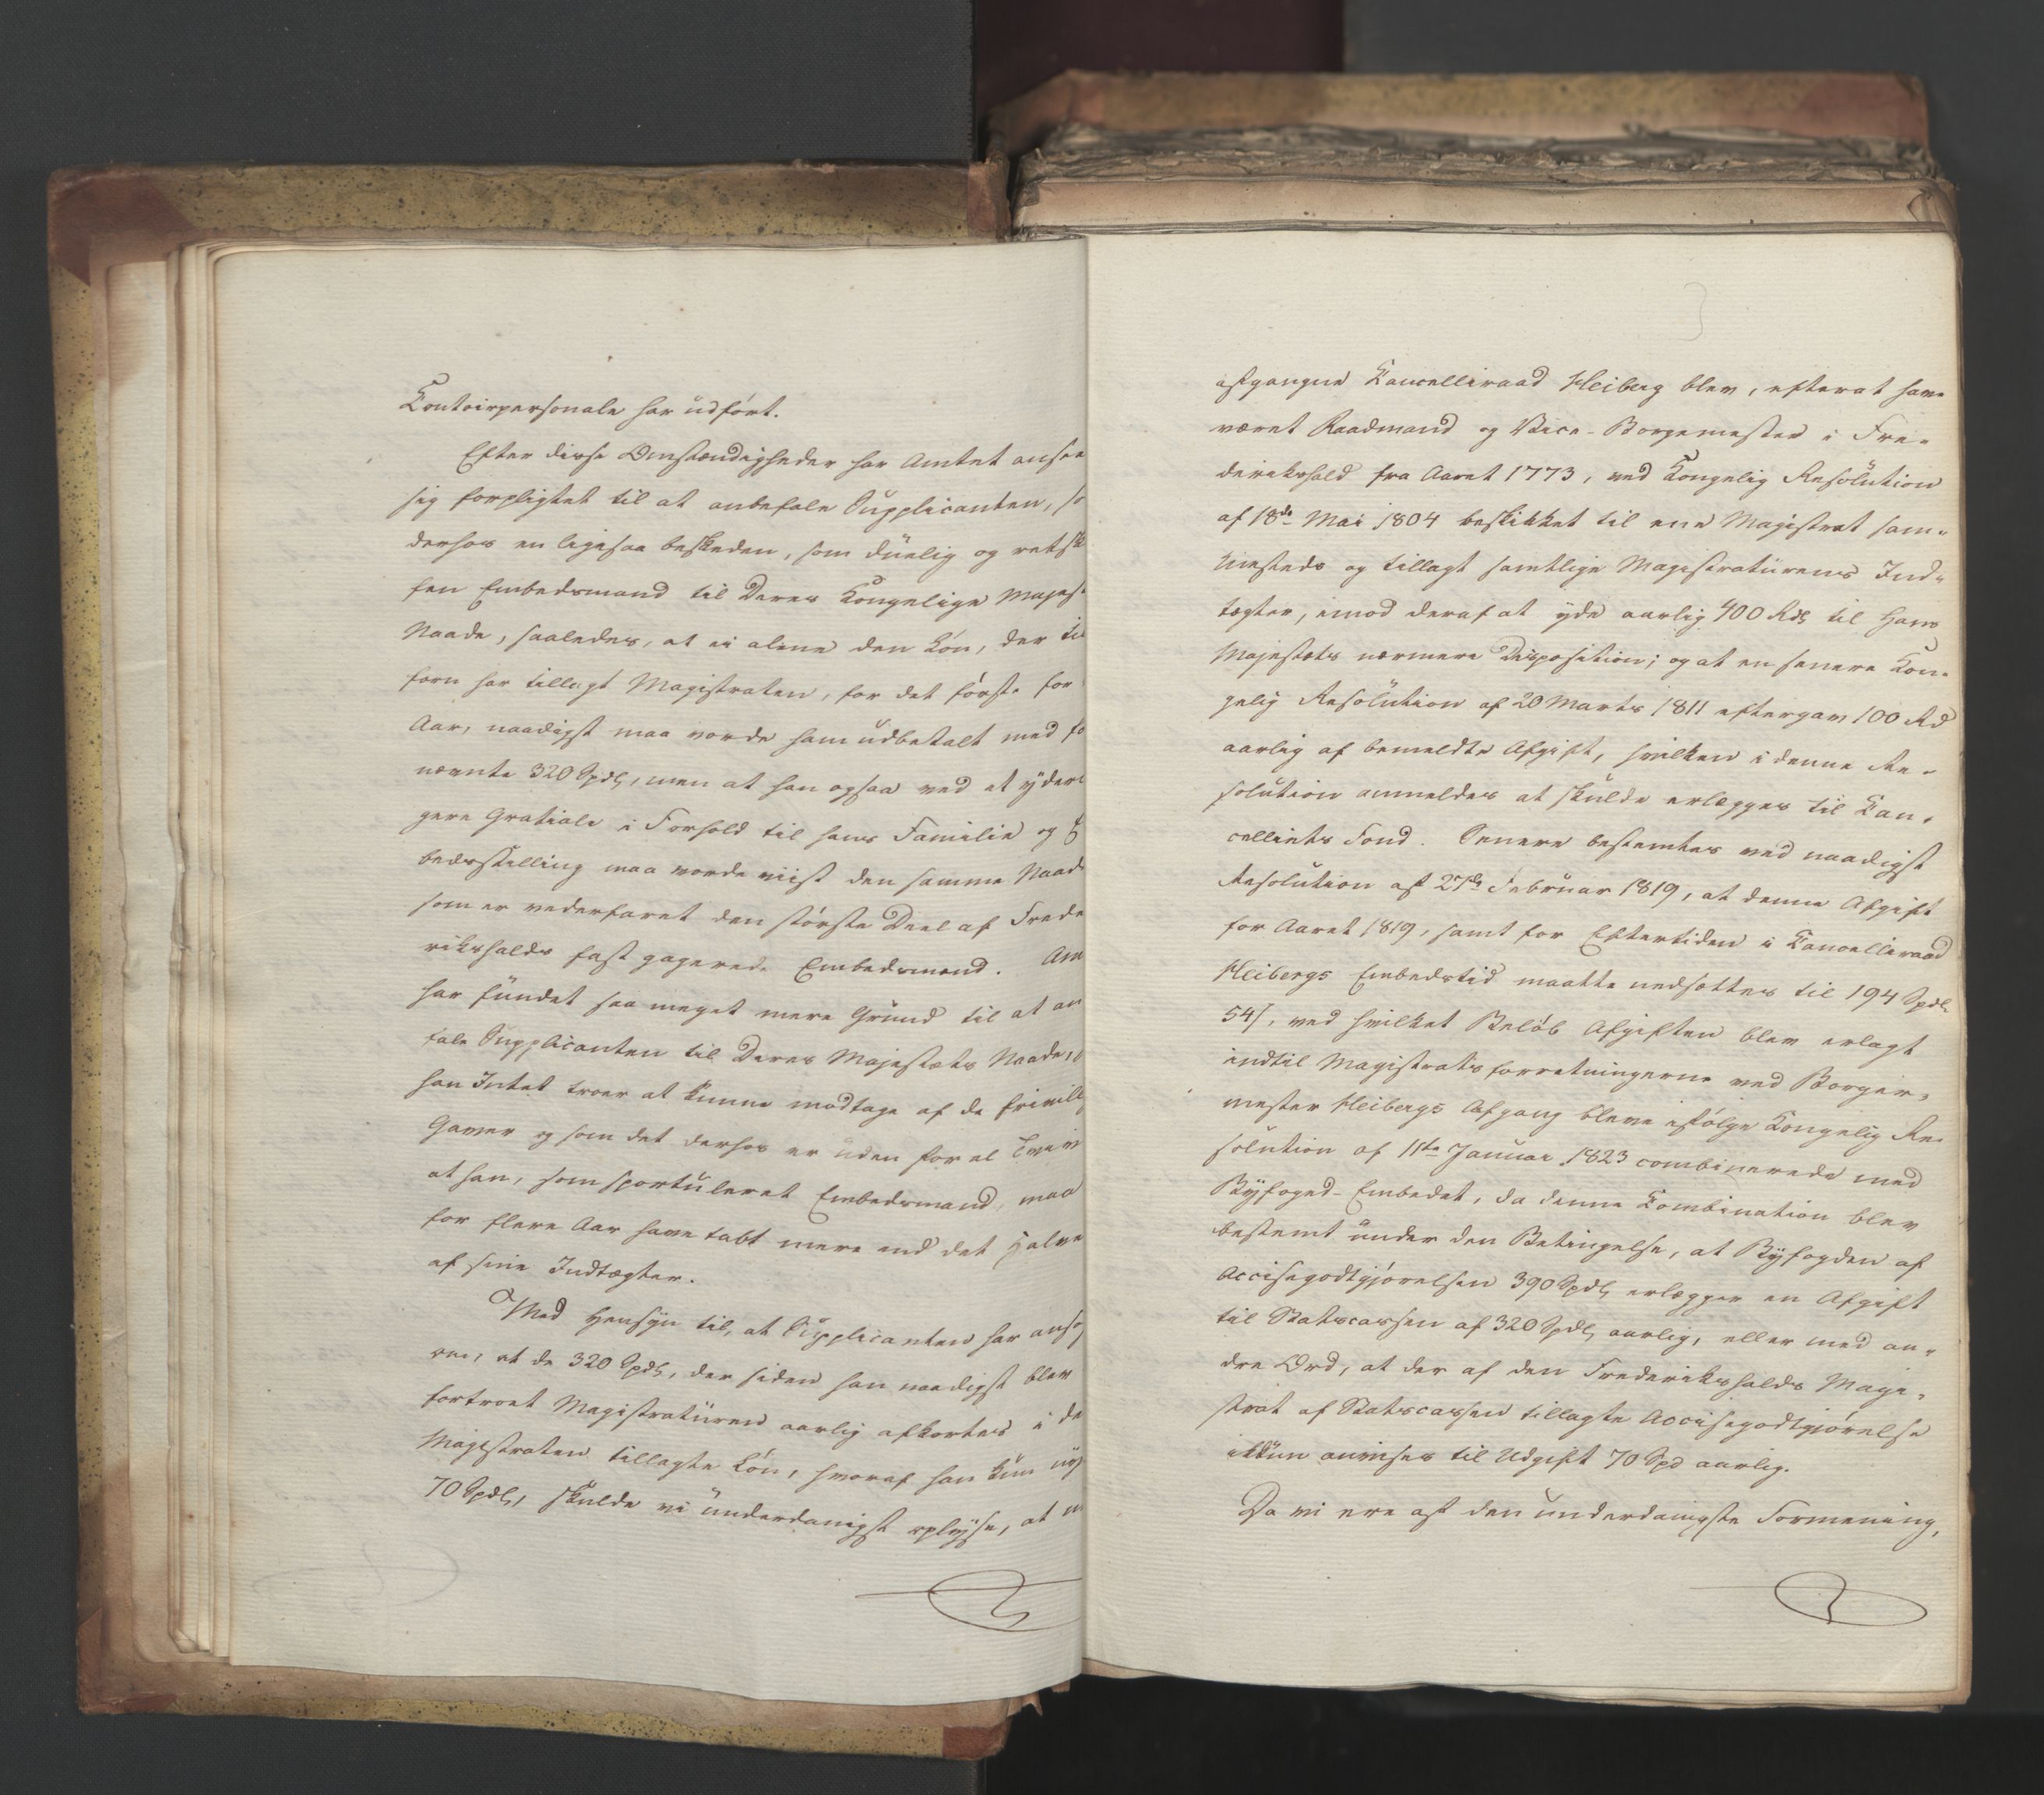 Contoirpersonale har udført.
Efter disse Omstændigheder har Amtet ansee
sig forpligtet til at anbefale Supplicanten, so
derhos en ligesaa beskeden, som duelig og retsk
fen Embedsmand til Deres Kongelige Majes-
Naade, saaledes, at ei alene den Løn, der til
forn har tillagt Magistraten, for det første for
Aar, naadigst maa vorde ham udbetalt med fo
nævnte 320 Spdlr, men at han ogsaa ved et yder
gere Gratiale i Forhold til hans Familie og E
bedsstilling maa vorde viist den samme Naad
som er vederfaret den største Deel af Frede
rikshalds fast gagerede Embedsmænd. Am
har fundet saa meget mere Grund til at an
fale Supplicanten til Deres Majestæts Naade,
han Intet troer at kunne modtage af de frivill
Gaver og som det derhos er uden for al Tvivl
at han, som sportuleret Embedsmand, maa
for flere Aar have tabt mere end det Halve
af sine Indtægter.
Med Hensyn til, at Supplicanten har ansø
om, at de 320 Spdlr, der siden han naadigst blev
fortroet Magistraturen aarlig afkortes i de
Magistraten tillagte Løn, hvoraf han kun
70 Spdlr, skulde vi underdanigst oplyse, at
afgangne Cancelliraad Heiberg blev, efterat have
været Raadmand og Vice-Borgemester i Fre-
derikshald fra Aaret 1773, ved Kongelig Resolution
af 18de Mai 1804 beskikket til ene Magistrat sam-
mesteds og tillagt samtlige Magistraturens Ind-
tægter, imod deraf at yde aarlig 400 Rdlr til Hans
Majestæts nærmere Disposition; og at en senere Kon-
gelig Resolution af 20 Marts 1811 eftergav 100 Rd
aarlig af bemeldte Afgift, hvilken i denne Re-
solution anmeldes at skulde erlægges til Can-
celliets Fond. Senere bestemtes ved naadigst
Resolution af 27de Februar 1819, at denne Afgift
for Aaret 1819, samt for Eftertiden i Cancelliraad
Heibergs Embedstid maatte nedsættes til 194 Spdlr
54 s, ved hvilket Beløb Afgiften blev erlagt
indtil Magistratsforretningerne ved Borger-
mester Heibergs Afgang bleve ifølge Kongelig Re-
solution af 11te Januar 1823 combinerede med
Byfoged-Embedet, da denne Combination blev
bestemt under den Betingelse, at Byfogden af
Accisegodtgjørelsen 390 Spdlr erlægger en Afgift
til Statscassen af 320 Spdlr aarlig, eller med an-
dre Ord, at der af den Frederikshalds Magi-
strat af Statscassen tillagte Accisegodtgjørelse
ikkun anvises til Udgift 70 Spd aarlig.
Da vi ere af den underdanigste Formening,